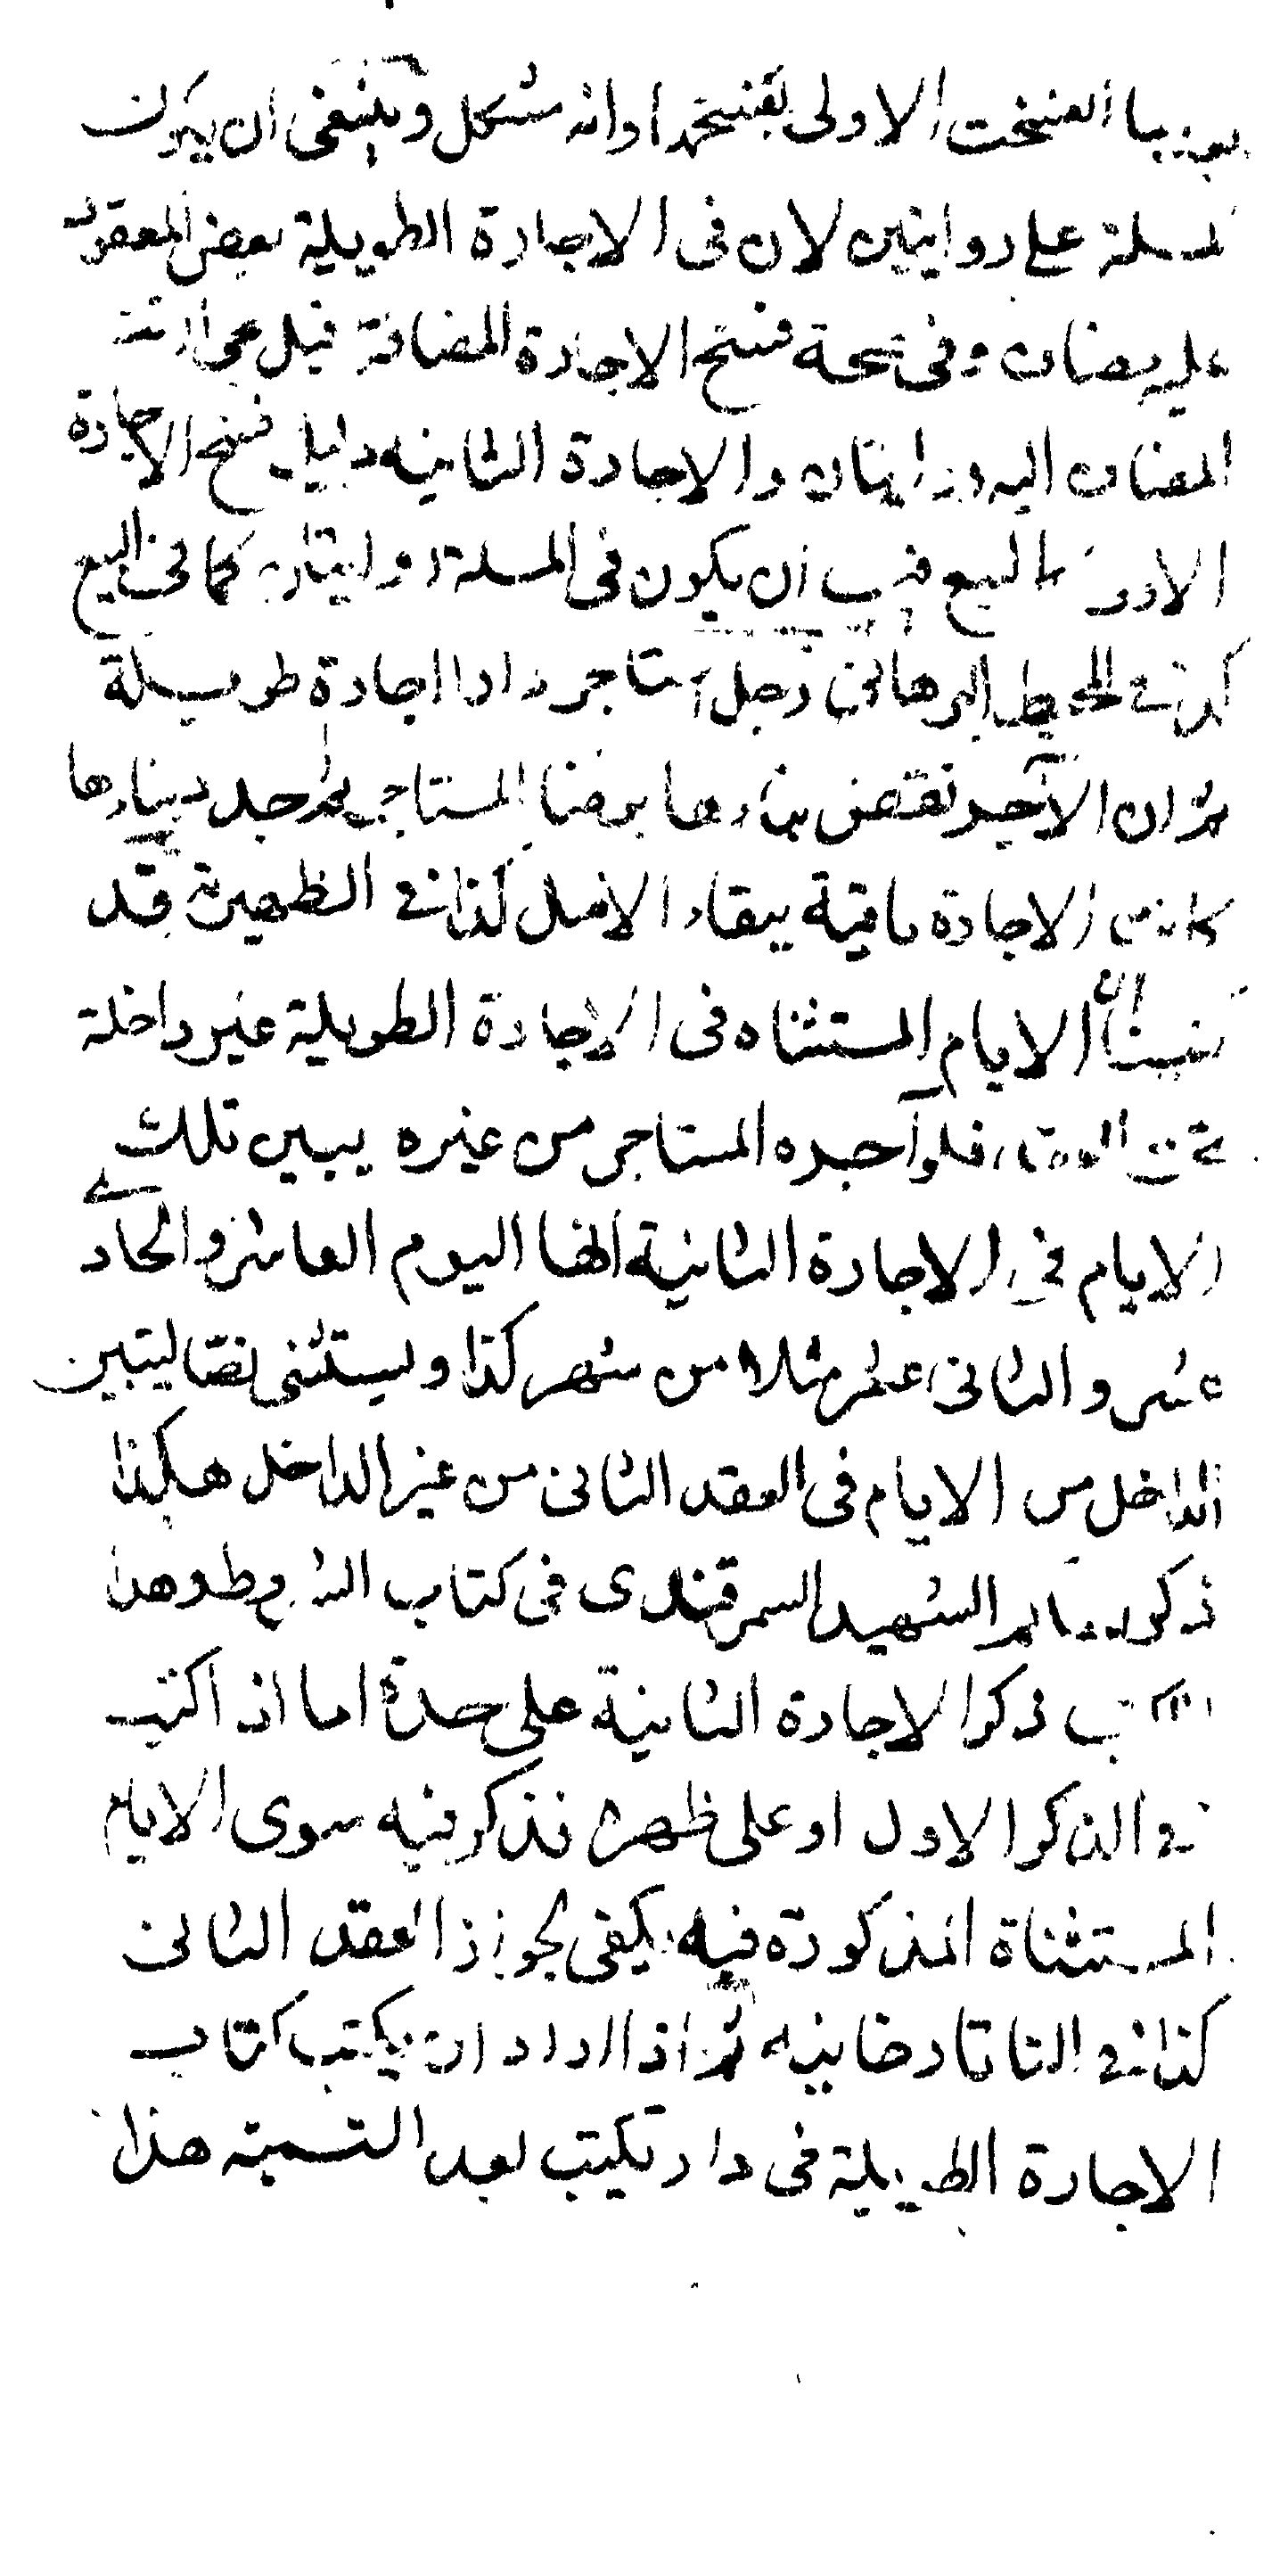 انفسخت الاولى بفسخهما وانه مشكل وينبغى ان يكون
المسئلة على روايتين لان فى الاجارة الطويلة بعض المعقود
عليه مضاف وفى صحة فسخ الاجارة المضافة قبل مجئ الوقت
المضاف اليه روايتان والاجارة الثانيه دليل فسخ الاجارة
الاولى البيع فيجب ان يكون فى المسئلة روايتان كما فى البيع
كذا فى المحيط البرهانى رجل استاجر دارا اجارة طويلة
ثم ان الآجر نقض بناءها برضا المستاجر بناءها
الاجارة باقية ببقاء الاصل كذا فى الظهيرية قد
ان الايام المستثناه فى الاجارة الطويلة غير داخلة
تحت العقد فلو آجره المستاجر من غيره يبين تلك
الايام فى الاجارة الثانية انها اليوم العاشر والحادى
عشر والثانى عشر مثلا من شهر كذا ويستثنى نصا ليتبين
الداخل من الايام فى العقد الثانى من غير الداخل هكذا
ذكره الشهيد السمرقندى فى كتاب الشروط وهذا
ذكر الاجارة الثانية على حدة اما اذا كتب
فى الذكر الاول او على ظهره فذكر فيه سوى الايام
المستثناة المذكورة فيه يكفى لجواز العقد الثانى
كذا فى التاتارخانيه ثم اذا اراد ان يكتب كتاب
الاجارة الطويلة فى دار تكتب بعد التسمية هذا